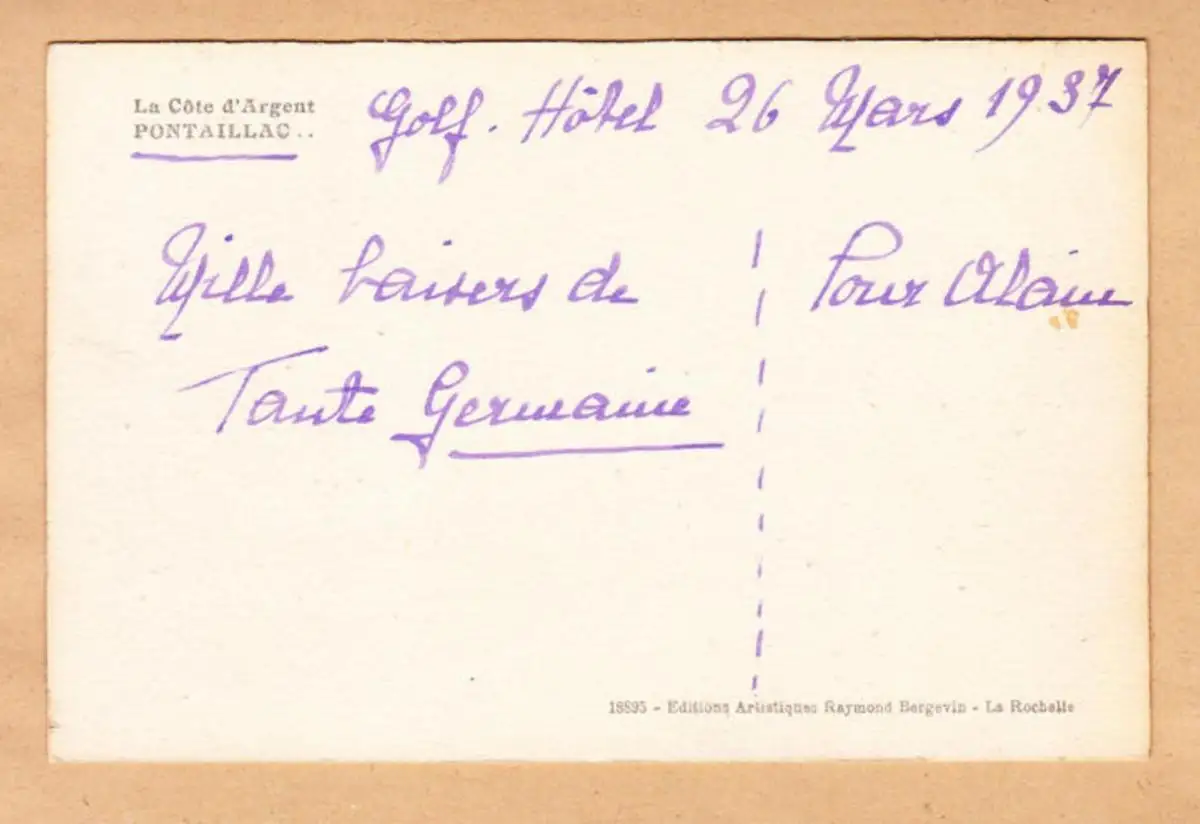 La Côte d'Argent
PONTAILLAC..
Golf. Hôtel 26 Mars 1937
Mille baisers de
Tante Germaine
Pour Alain
18895 - Editions Artistiques Raymond Bergevin - La Rochelle